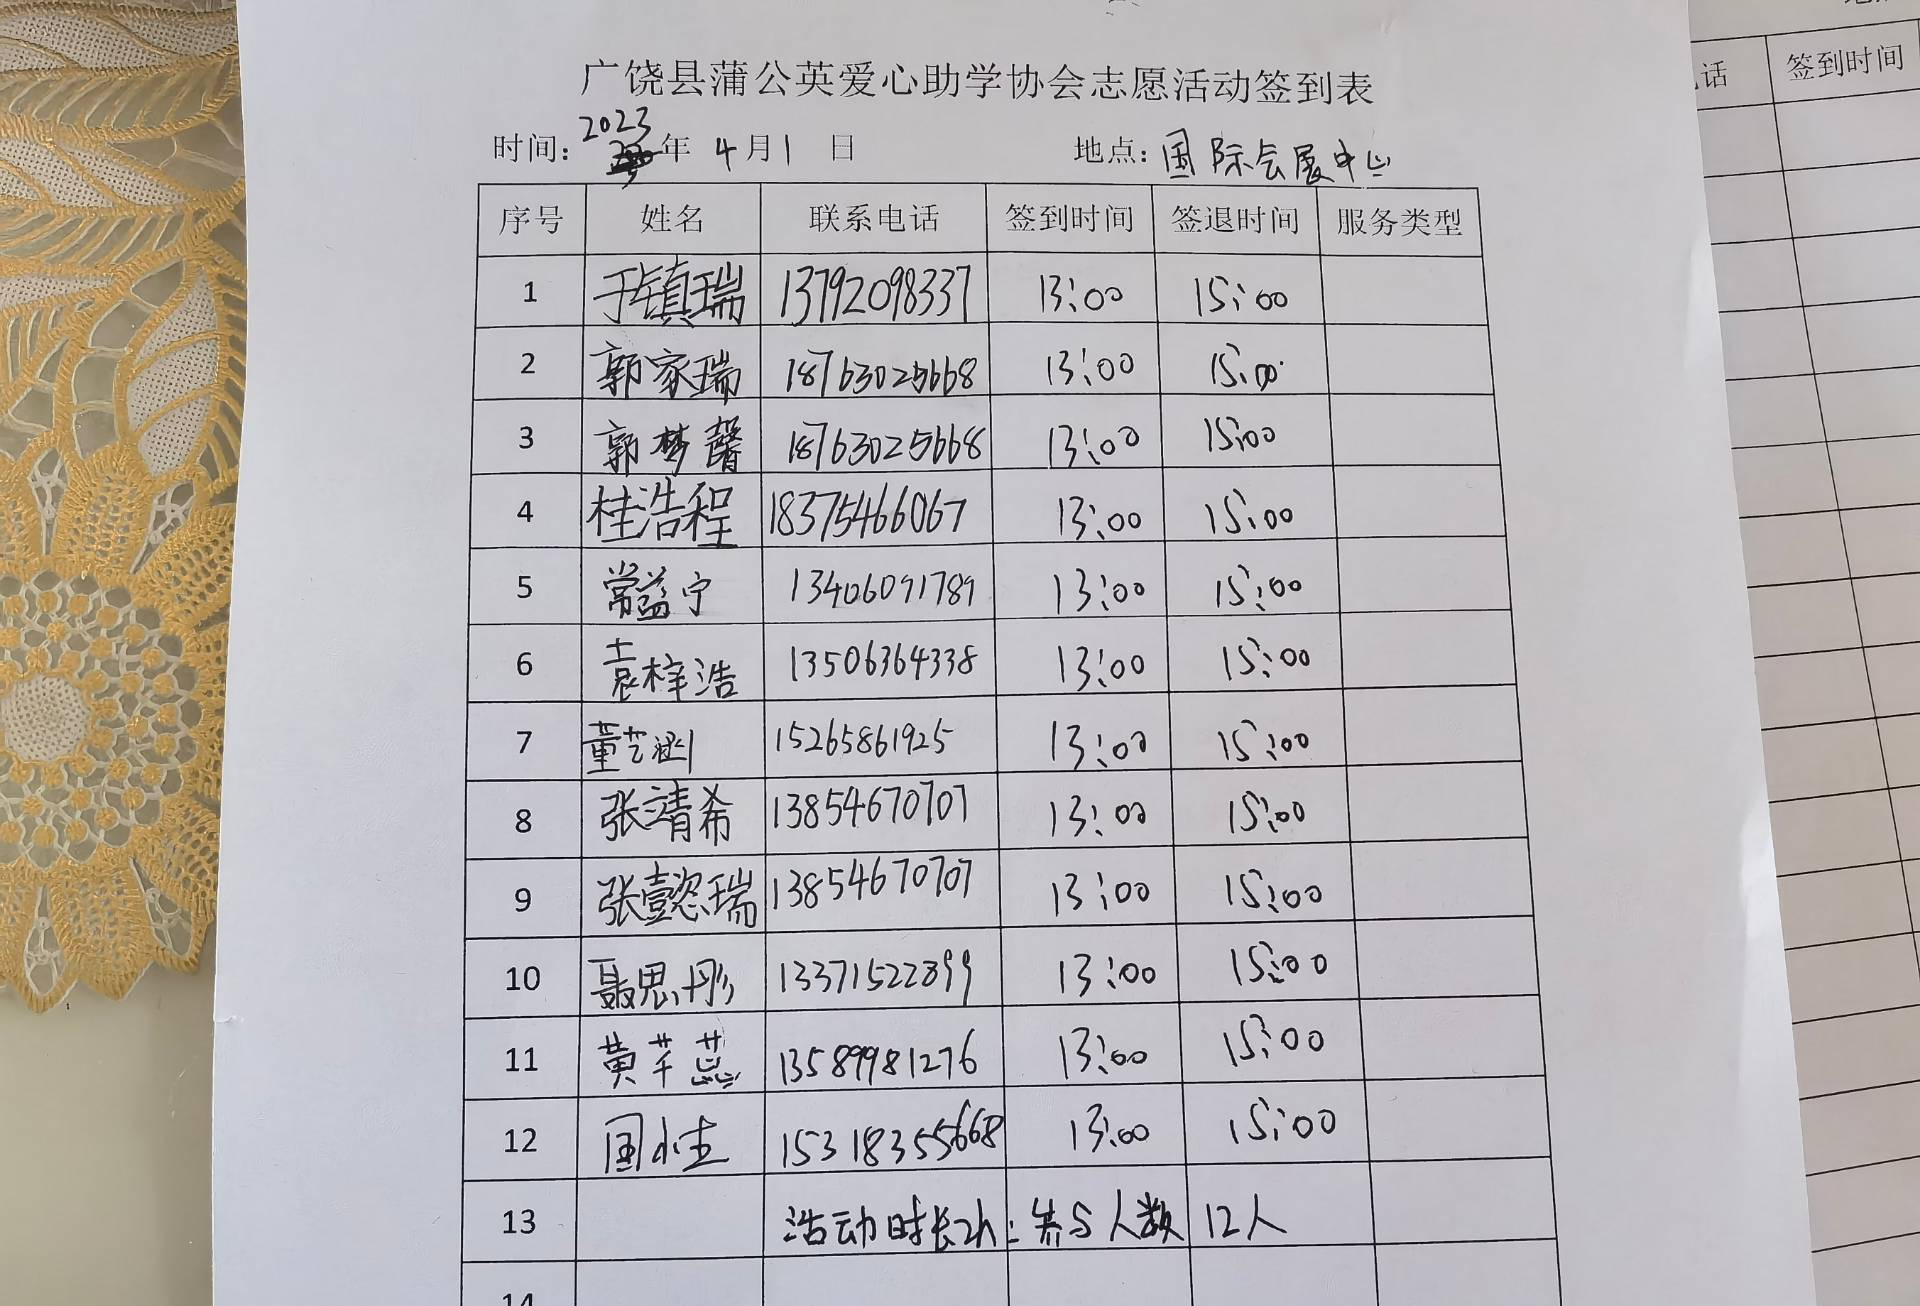 广饶县蒲公英爱心助学协会志愿活动签到表
时间: 2023 年 4 月 1 日 地点: 国际会展中心
序号 姓名 联系电话 签到时间 签退时间 服务类型
1 于镇瑞 13792098337 13:00 15:00
2 郭家瑞 18763025668 13:00 15:00
3 郭梦馨 18763025668 13:00 15:00
4 桂浩程 18375466067 13:00 15:00
5 常益宁 13406091789 13:00 15:00
6 袁梓浩 13506364338 13:00 15:00
7 董艺涵 15265861925 13:00 15:00
8 张靖希 13854670707 13:00 15:00
9 张懿瑞 13854670707 13:00 15:00
10 聂思彤 13371522899 13:00 15:00
11 黄芊蕊 13589981276 13:00 15:00
12 国 15318355668 13:00 15:00
13 活动时长2h: 参与人数 12人
14
话 签到时间